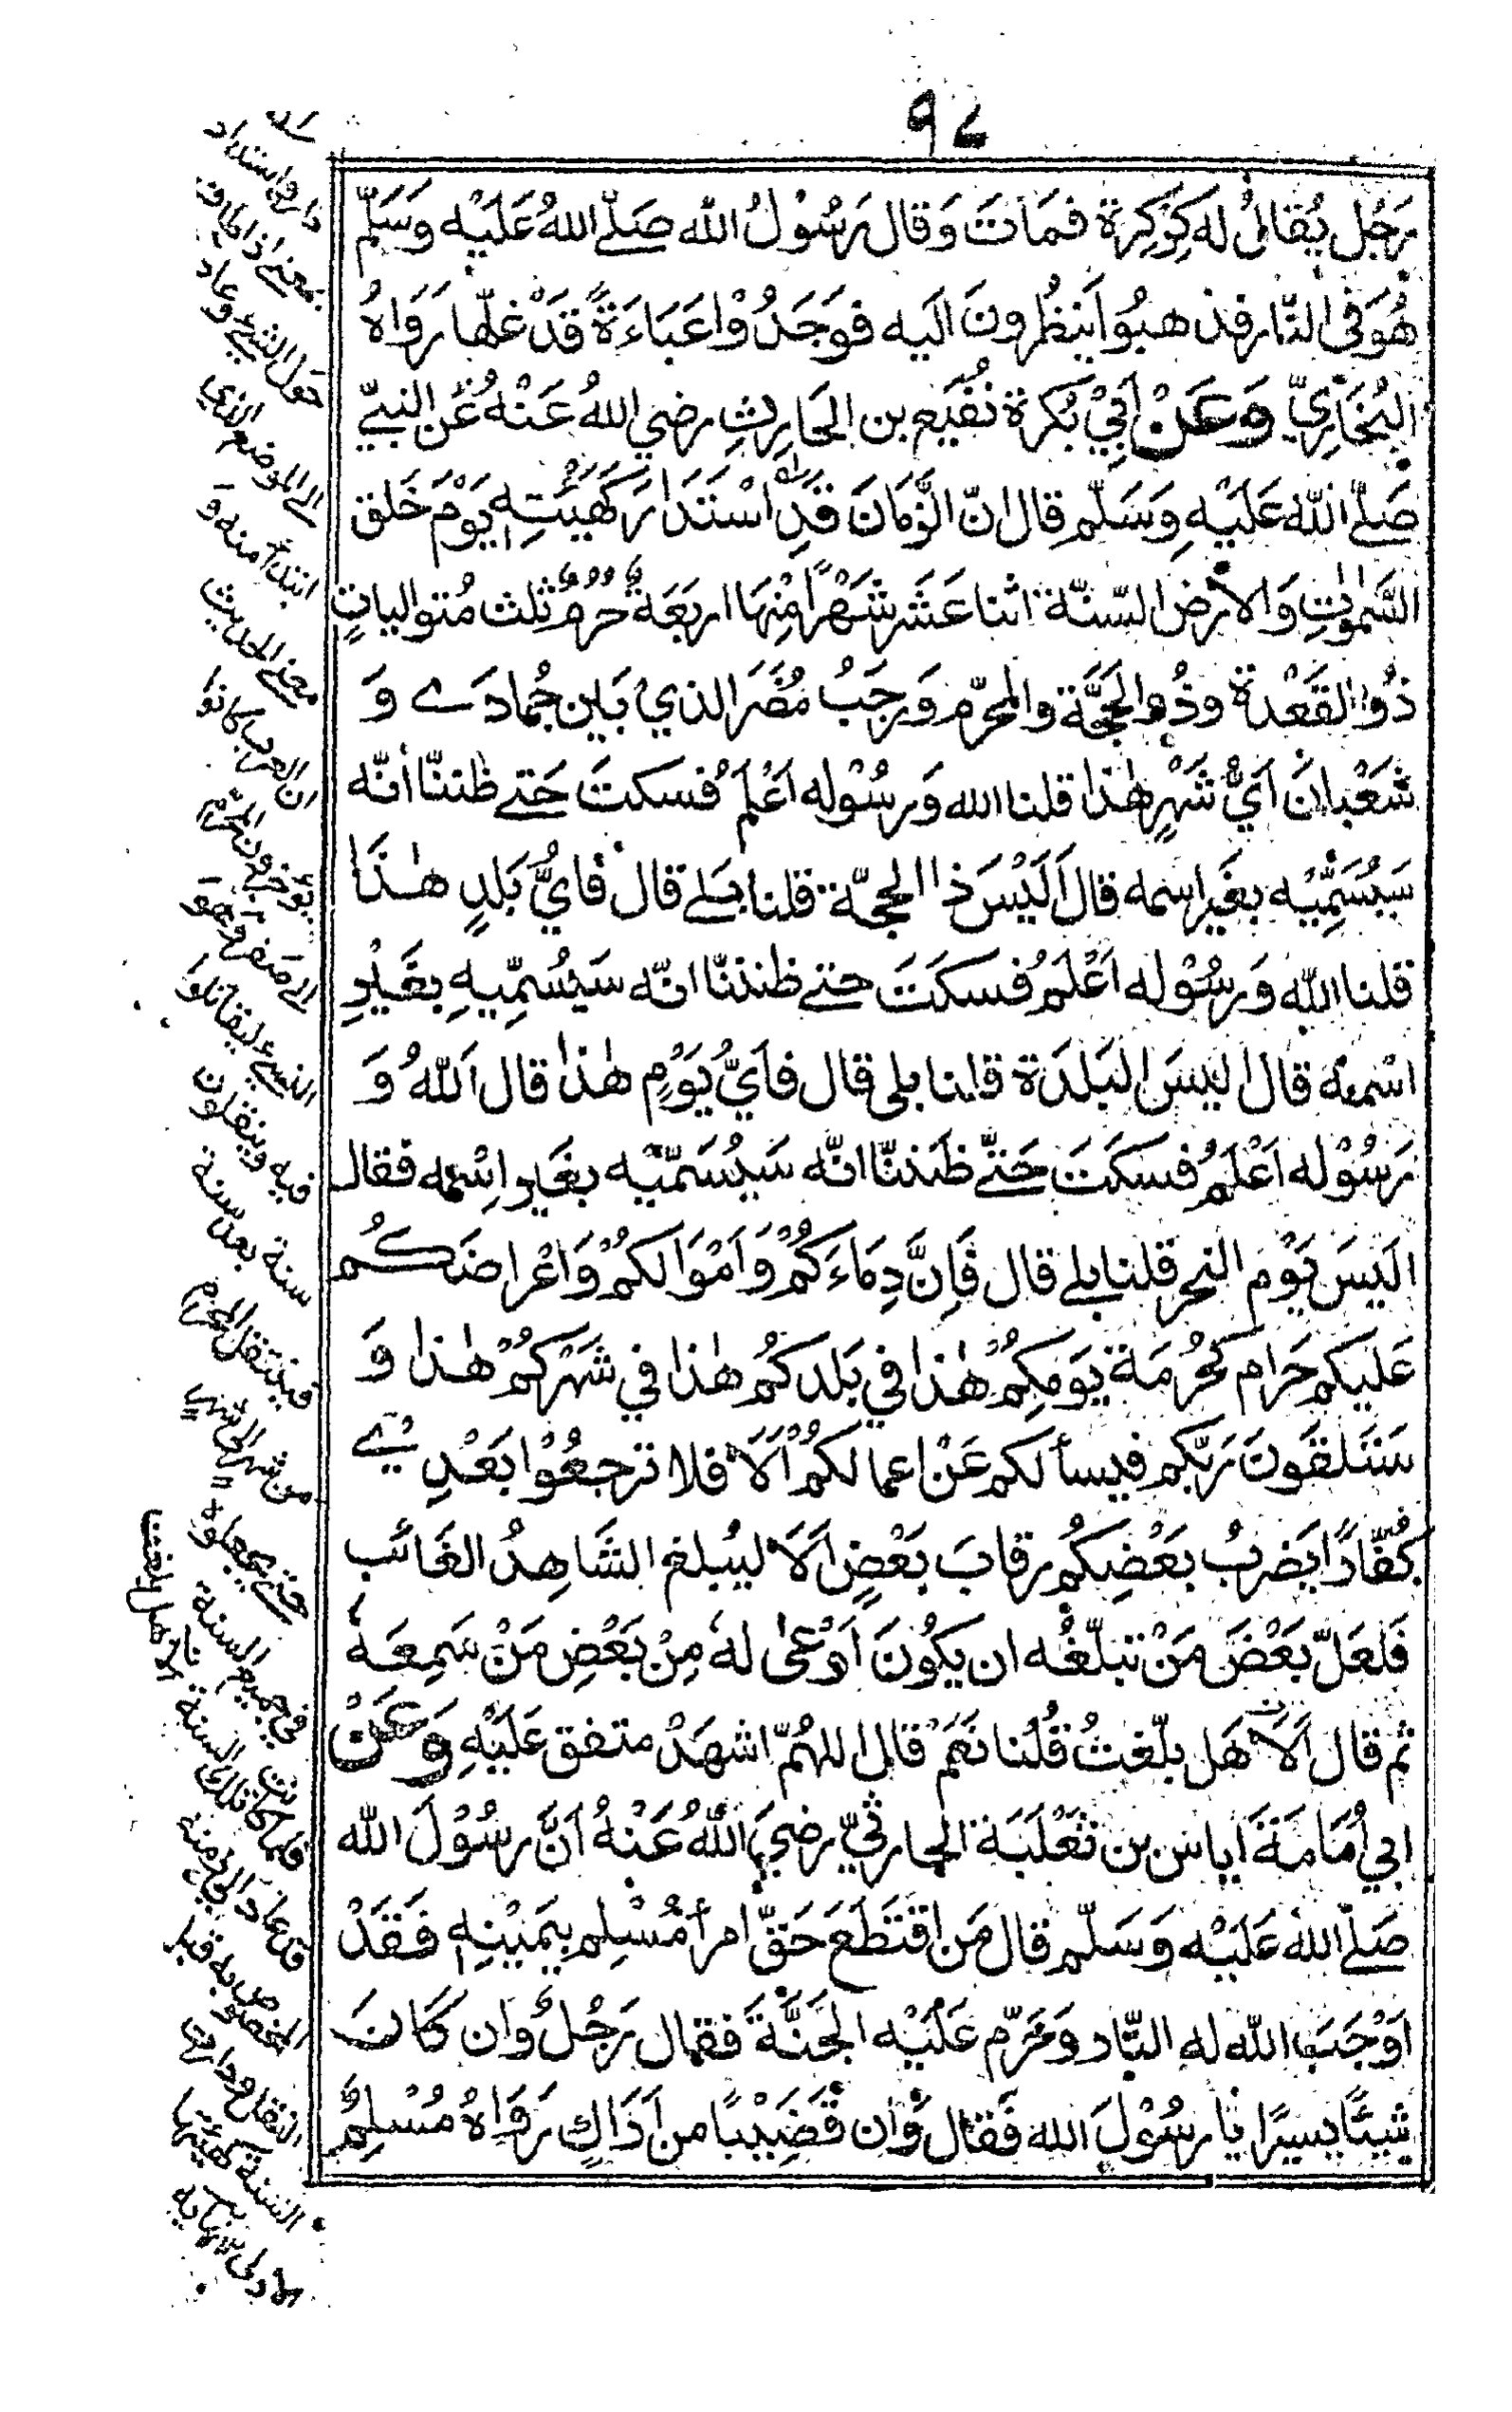 ٩٢
رَجُل يُقالُ له كِرْكِرة فمَاتَ وَقال رَسُوْلُ الله صَلّے اللهُ عَلَيْه وَسَلّم
هُوَ في النّار فذهبُوا يَنظُرونَ اليه فوَجَدُوْا عَبَاءَةً قَدْ غلّها رَوَاهُ
البُخَارِيّ وَعَنْ اَبِيْ بَكرة نُفَيع بن الحَارِثِ رضي اللهُ عَنْهُ عَن النبيّ
صَلّے اللّٰه عَلَيْهِ وَسَلّم قال انّ الزّمَانَ قَدِ اسْتَدَارَ كَهَيْئَتِهٖ يَوْمَ خَلق
السَّمٰوٰتِ وَالاَرْض السّنة اثنا عَشَر شَهْرًا مِنْهَا اربَعَة حُرُمٌ ثلث مُتوالياتٍ
ذُوا القَعْدة وذُو الحجَّة والمحرّم وَرجَبُ مُضَرَ الذيْ بَين جُمادَے وَ
شَعْبانَ اَيُّ شَهْرٍ هٰذا قلنا الله وَرسُوْله اَعْلمُ فسكتَ حَتے ظننّا انّه
سَيُسَمِّيْه بغَير اسمه قال اَلَيْسَ ذا الحجّة قلنا بلے قال فَايُّ بَلدٍ هٰذَا
قلنا اللّه وَرسُوْله اَعْلمُ فسكَتَ حتے ظننّا انّه سَيُسَمِّيهِ بغَيْرِ
اسْمه قال اليسَ البَلدَة قلنا بلى قال فايُّ يَوْمٍ هٰذا قال اَللّٰهُ وَ
رَسُوْله اَعْلَمُ فسكَتَ حَتّے ظَننّا انّه سَيُسَمّيْه بغَير اسْمه فقال
الَيْسَ يَوْم النحر قلنا بلے قال فَاِنَّ دِمَاءَكُمْ وَاَمْوَالكُمْ وَاَعْراضَكُم
عَليكم حَرَام كحُرْمَة يَوْمِكُمْ هٰذا في بَلدكُم هٰذا في شَهْركُمْ هٰذا وَ
سَتَلقَونَ رَبّكم فيسأ لكم عَنْ اعمالكُمْ اَلَا فلا ترجعُوْا بَعْدِيْ
كُفّارًا يَضربُ بعْضكُم رقابَ بَعْضٍ اَلَا ليُبلغ الشّاهِدُ الغَائب
فَلعَلّ بَعْضَ مَنْ تبلّغُه ان يكُونَ اَوْعٰى لهٗ مِنْ بَعْضِ مَنْ سَمِعَهٗ
ثم قال اَلَا هَل بلّغتُ قُلْنا نَعَمْ قال اللهُمّ اشهَدْ متفق عَلَيْهِ وَعَنْ
ابي اُمَامَةَ اياس بن ثَعْلَبَة الحارثيّ رضيَ اللّٰهُ عَنْهُ اَنَّ رسُوْلَ الله
صَلّے اللهُ عَلَيْه وَسَلّم قال مَن اقتَطَعَ حَقّ امرأ مُسْلِم بيَميْنِهٖ فَقَدْ
اَوْجَبَ اللّه له النّار وَحَرّم عَلَيْه الجَنَّةَ فقال رَجُلٌ وَان كَانَ
شيئًا يسيرًا يا رسُوْلَ الله فَقالَ وَان قَضِيْبًا من اَرَاكٍ رَوَاهُ مُسْلِمٌ
بمعنے اذا طاف
حول الشيء وعاد
الے الموضع الذي
ابتدأ منه وَ
معنے الحديث
ان العرب كانوا
يؤخرون المحرم
الے صفر وهو
النسيء ليقاتلوا
فيه وينقلون
سنة بعد سنة
فينتقل المحرم
من شهر الى شهر
حتے يجعلوه
في جميع السنة